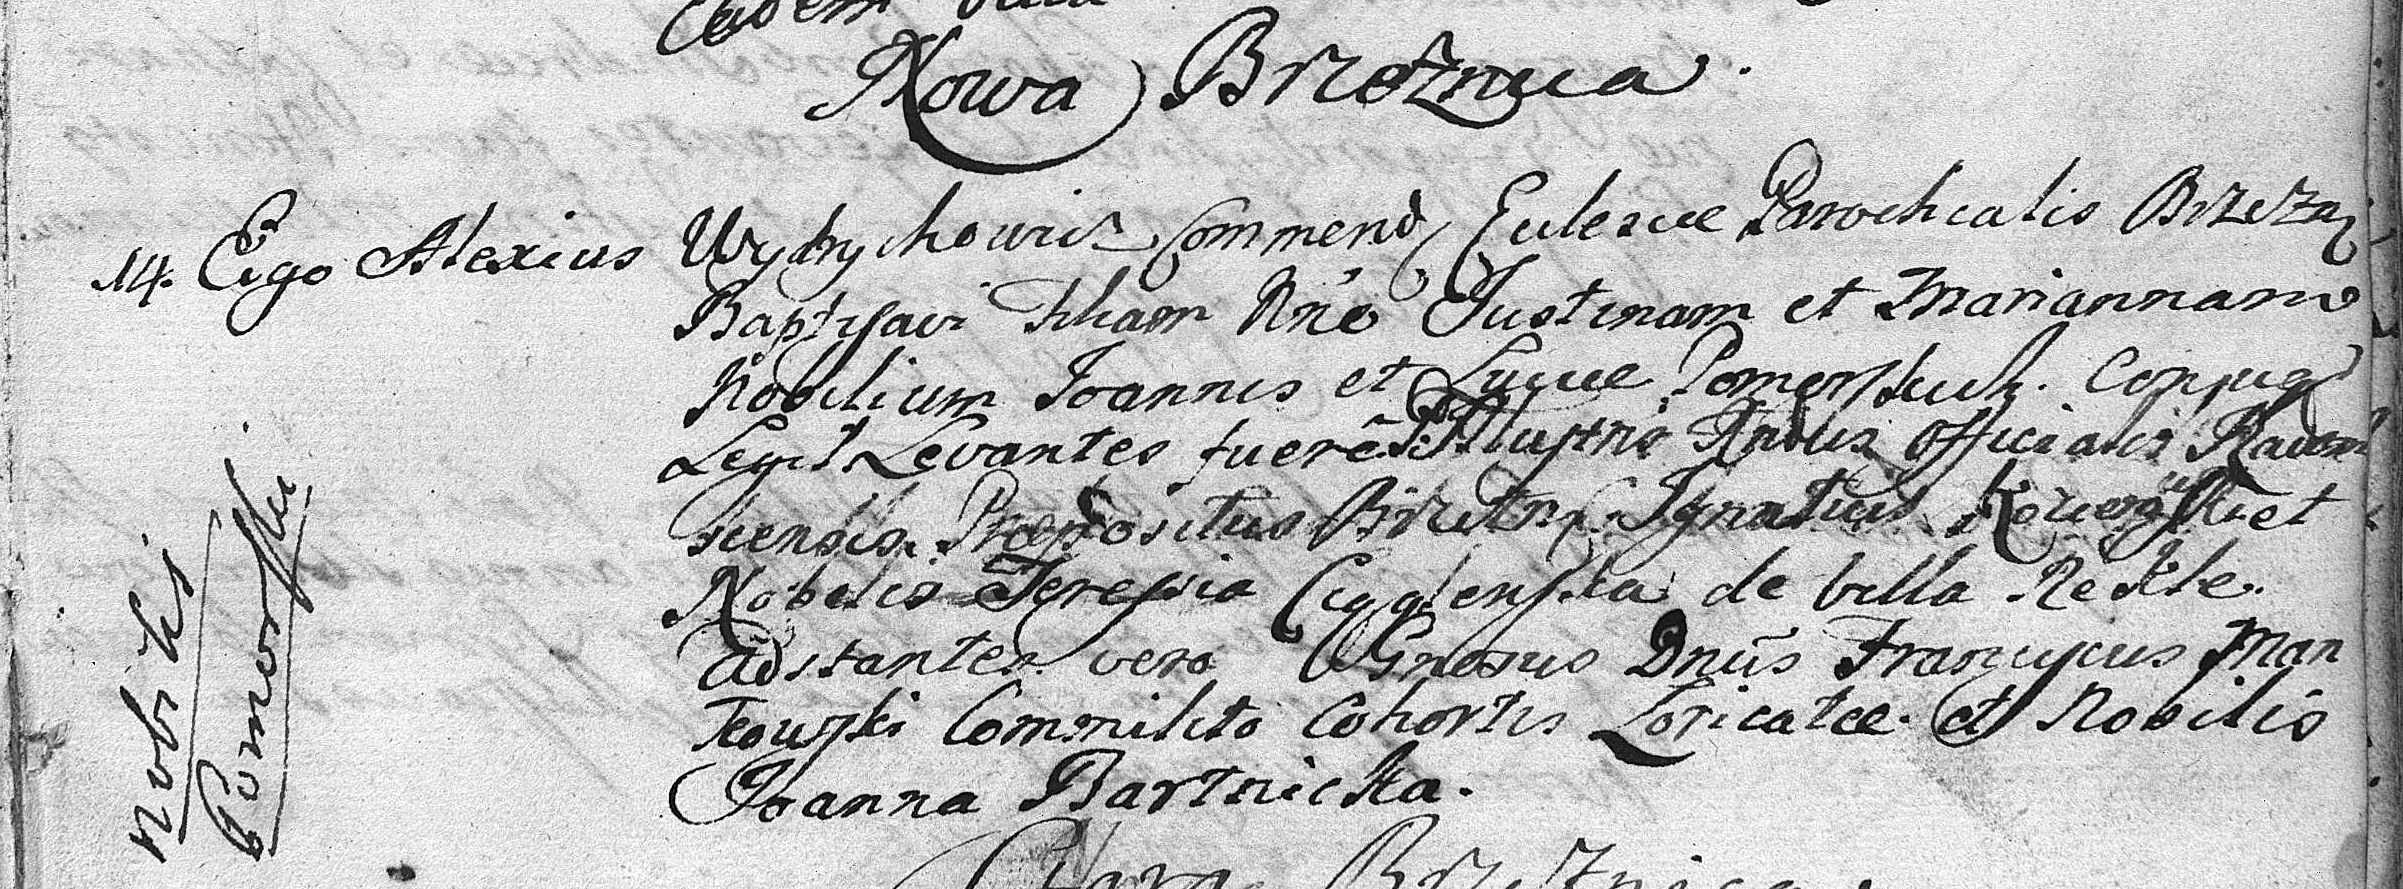 Eadem
Nowa Brzeznica.
14. Ego Alexius Wydrychowicz Commend Eclesiae Parochialis Brzezn
Baptisavi filiam Nne Justinam et Mariannam
Nobilium Joannis et Luciae Pomorskich. Conjug
Legit Levantes fuere Officialis
Praepositus Brzezn Ignatius et
Nobilis Teressia de villa Rekle.
adstantes vero Gnerosus Dnus Franciscus Man
kowski Commilito Cohortis Loricatae. et Nobilis
Joanna Bartnicka.
Nobilis
Pomorski